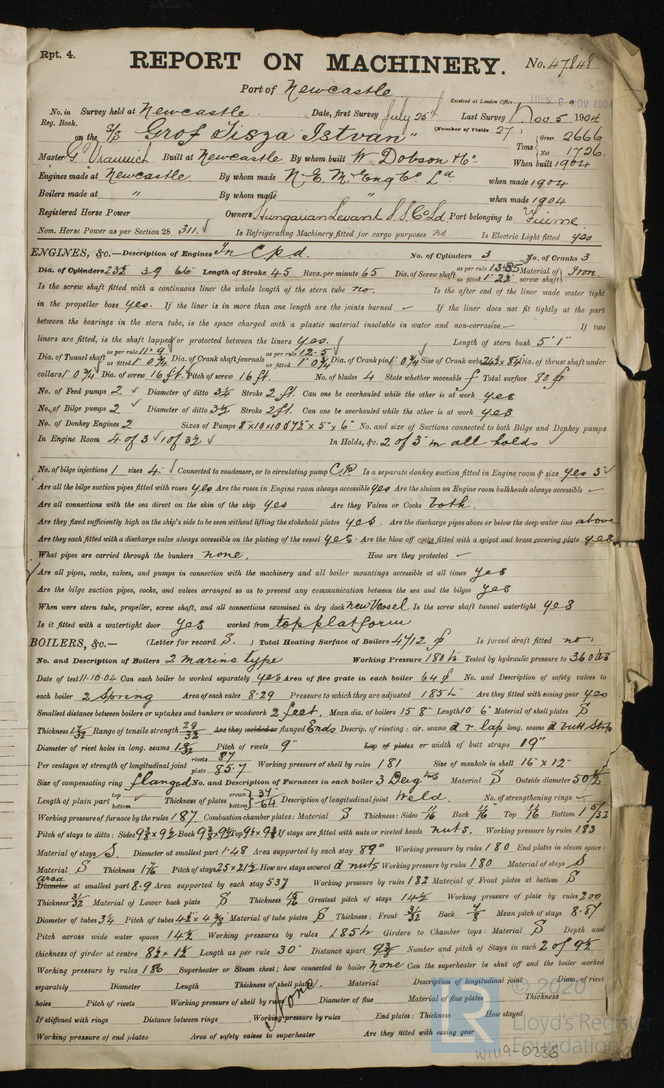 Rpt. 4.
REPORT ON MACHINERY.
No. 47848
Port of Newcastle
Received at London Office
No. in Survey held at Newcastle Date, first Survey July 25th Last Survey Nov 5 1904
Reg. Book.
(Number of Visits 27)
on the S/S "Grof Tisza Istvan"
Tons Gross 2666
Net 1726
Master Built at Newcastle By whom built W. Dobson & Co When built 1904
Engines made at Newcastle By whom made N. E. M. Eng Co Ld when made 1904
Boilers made at " By whom made " when made 1904
Registered Horse Power Owners Hungarian Levant S.S. Co Ld Port belonging to Fiume
Nom. Horse Power as per Section 28 311 Is Refrigerating Machinery fitted for cargo purposes no Is Electric Light fitted yes
ENGINES, &c.—Description of Engines In C.P.d. No. of Cylinders 3 No. of Cranks 3
Dia. of Cylinders 23½ 39 66 Length of Stroke 45 Revs. per minute 65 Dia. of Screw shaft as per rule 13.85 as fitted Material of screw shaft Iron
Is the screw shaft fitted with a continuous liner the whole length of the stern tube no. Is the after end of the liner made water tight
in the propeller boss yes. If the liner is in more than one length are the joints burned – If the liner does not fit tightly at the part
between the bearings in the stern tube, is the space charged with a plastic material insoluble in water and non-corrosive – If two
liners are fitted, is the shaft lapped or protected between the liners yes. Length of stern bush 5' 1"
Dia. of Tunnel shaft as per rule as fitted Dia. of Crank shaft journals as per rule 12.5 as fitted Dia. of Crank pin Size of Crank webs Dia. of thrust shaft under
collars Dia. of screw 16 ft. Pitch of screw 16 ft. No. of blades 4 State whether moveable Total surface 80
No. of Feed pumps 2 Diameter of ditto Stroke 2 ft. Can one be overhauled while the other is at work yes
No. of Bilge pumps 2 Diameter of ditto Stroke 2 ft. Can one be overhauled while the other is at work yes
No. of Donkey Engines 2 Sizes of Pumps No. and size of Suctions connected to both Bilge and Donkey pumps
In Engine Room 4 of 3 1 of 3½ In Holds, &c. 2 of 3" in all holds
No. of bilge injections 1 sizes 4" Connected to condenser, or to circulating pump C.P. Is a separate donkey suction fitted in Engine room & size yes 3
Are all the bilge suction pipes fitted with roses yes Are the roses in Engine room always accessible yes Are the sluices on Engine room bulkheads always accessible –
Are all connections with the sea direct on the skin of the ship yes Are they Valves or Cocks both.
Are they fixed sufficiently high on the ship's side to be seen without lifting the stokehold plates yes. Are the discharge pipes above or below the deep water line above
Are they each fitted with a discharge valve always accessible on the plating of the vessel yes. Are the blow off cocks fitted with a spigot and brass covering plate yes.
What pipes are carried through the bunkers none. How are they protected –
Are all pipes, cocks, valves, and pumps in connection with the machinery and all boiler mountings accessible at all times yes
Are the bilge suction pipes, cocks, and valves arranged so as to prevent any communication between the sea and the bilges yes
When were stern tube, propeller, screw shaft, and all connections examined in dry dock new Vessel Is the screw shaft tunnel watertight yes
Is it fitted with a watertight door yes worked from top platform
BOILERS, &c.— (Letter for record S.) Total Heating Surface of Boilers 4712 Is forced draft fitted no.
No. and Description of Boilers 2 marine type Working Pressure 180 Tested by hydraulic pressure to 360 lbs
Date of test 11.10.04 Can each boiler be worked separately yes Area of fire grate in each boiler 64 No. and Description of safety valves to
each boiler 2 Spring Area of each valve 8.29 Pressure to which they are adjusted 185 Are they fitted with easing gear yes
Smallest distance between boilers or uptakes and bunkers or woodwork 2 feet. Mean dia. of boilers 15' 8" Length 10' 6" Material of shell plates S
Thickness Range of tensile strength 29/32 Are they welded or flanged Ends Descrip. of riveting: cir. seams d r. lap long. seams d butt strap
Diameter of rivet holes in long. seams Pitch of rivets 9" Lap of plates or width of butt straps 19"
Per centages of strength of longitudinal joint rivets 87 plate 85.7 Working pressure of shell by rules 181 Size of manhole in shell 16" x 12"
Size of compensating ring flanged No. and Description of Furnaces in each boiler 3 Material S Outside diameter 50
Length of plain part top bottom Thickness of plates crown bottom 37/64 Description of longitudinal joint Weld. No. of strengthening rings –
Working pressure of furnace by the rules 187 Combustion chamber plates: Material S Thickness: Sides Back Top Bottom
Pitch of stays to ditto: Sides Back Top If stays are fitted with nuts or riveted heads nuts. Working pressure by rules 183
Material of stays S. Diameter at smallest part 1.48 Area supported by each stay 89" Working pressure by rules 180 End plates in steam space:
Material S Thickness Pitch of stays How are stays secured d nuts Working pressure by rules 180 Material of stays S
area
Diameter at smallest part 8.9 Area supported by each stay 537 Working pressure by rules 182 Material of Front plates at bottom S
Thickness Material of Lower back plate S Thickness Greatest pitch of stays 14½ Working pressure of plate by rules 200
Diameter of tubes Pitch of tubes Material of tube plates S Thickness: Front 31/32 Back Mean pitch of stays 8.87
Pitch across wide water spaces 14½ Working pressures by rules 185 Girders to Chamber tops: Material S Depth and
thickness of girder at centre Length as per rule 30" Distance apart Number and pitch of Stays in each 2 of 9½
Working pressure by rules 186 Superheater or Steam chest; how connected to boiler none Can the superheater be shut off and the boiler worked
separately Diameter Length Thickness of shell plates Material Description of longitudinal joint Diam. of rivet
holes Pitch of rivets Working pressure of shell by rules none Diameter of flue Material of flue plates Thickness
If stiffened with rings Distance between rings Working pressure by rules End plates: Thickness How stayed
Working pressure of end plates Area of safety valves to superheater Are they fitted with easing gear
© 2020
Lloyd's Register
Foundation
W1119-0236